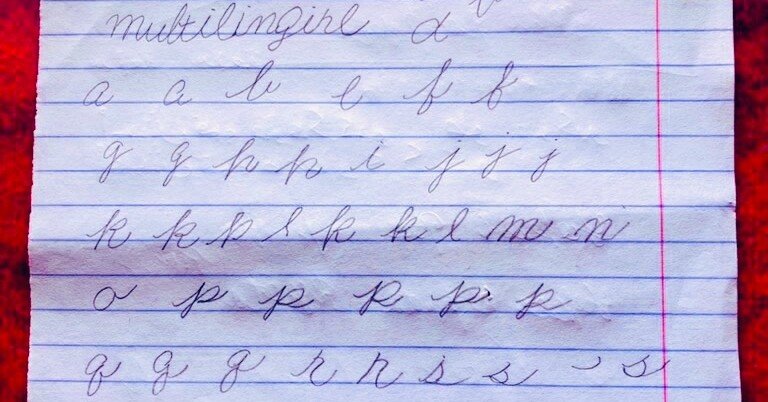 multilingirl a
a a b e f f
g g h h i j j j
k k p s k k l m n
o p p p p p
q g g r r s s s